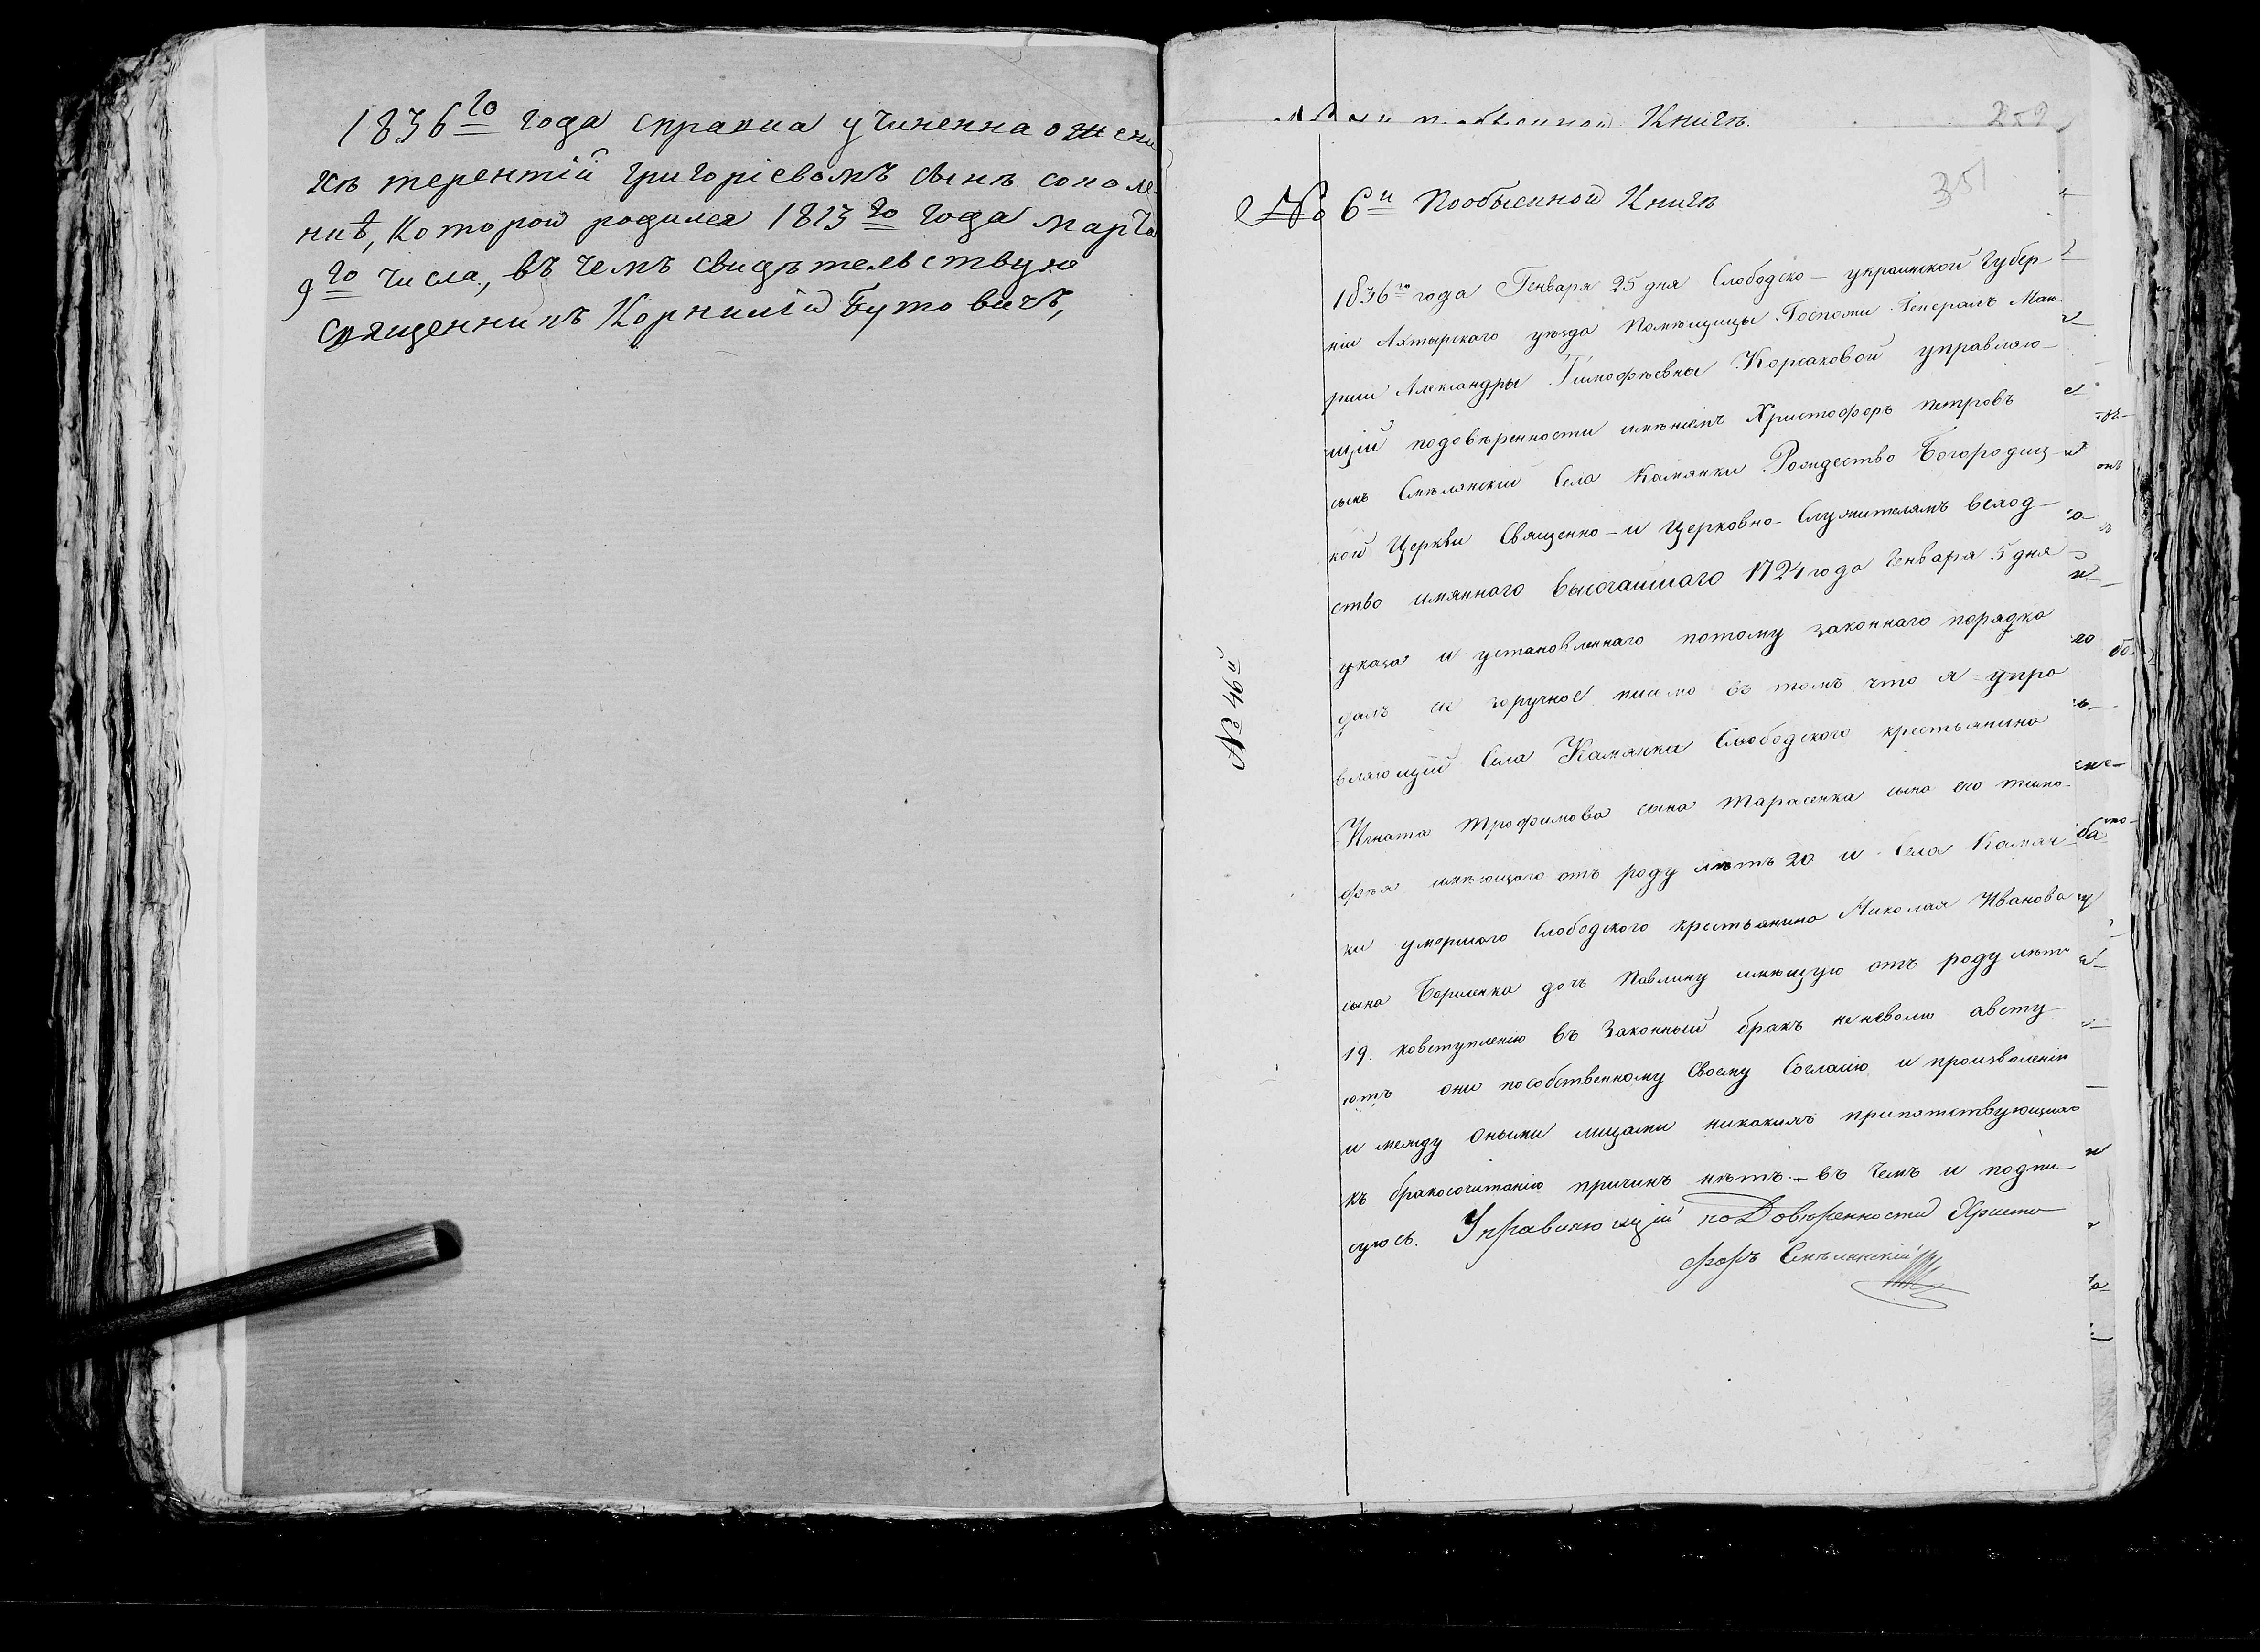 1836го года справка учиненна о жени
хѣ терентій григоріевомъ сынѣ соколе-
нкѣ, Которой родился 1813го года марта
9го числа, въ чемъ свидѣтельствую
священникъ Корнилій Бутовичъ,
Книгѣ.
351
№ 6й Пообыскной Книгѣ
1836го года Генваря 25 дня Слободско-украинской Губер-
ніи Ахтырского уѣзда Помѣщицы Госпожи Генералъ Маіо-
рши Александры Тимофѣевны Корсаковой управляю-
щій подовѣренности имѣніемъ Христофоръ петровъ
сынъ Смѣлянскій Села Камянки Рождество Богородиц-
кой Церкви Священно-и Церковно-Служителямъ всход-
ство имяннаго высочайшаго 1724 года Генваря 5 дня
указа и установленнаго потому законнаго порядка
далъ сіе поручное письмо въ томъ что я упра
вляющій Села Камянки Слободского крестьянина
Игната трофимова сына тарасенка сына его тимо-
фѣя имѣющаго отъ роду лѣтъ 20 и Села Камян-
ки умершаго Слободского крестьянина Николая Иванова
сына дочь Павлину имѣющую отъ роду лѣтъ
19. ковступленію въ Законный бракъ неневолю австу
ютъ они пособственному Своему Согласію и произволенію
и между оными лицами никакихъ припятствующихъ
къ бракосочитанію причинъ нѣтъ.-въ чемъ и подпи-
суюсь. Управляющій по Довѣренности Христо
форъ Смѣлянскій
№ 46й